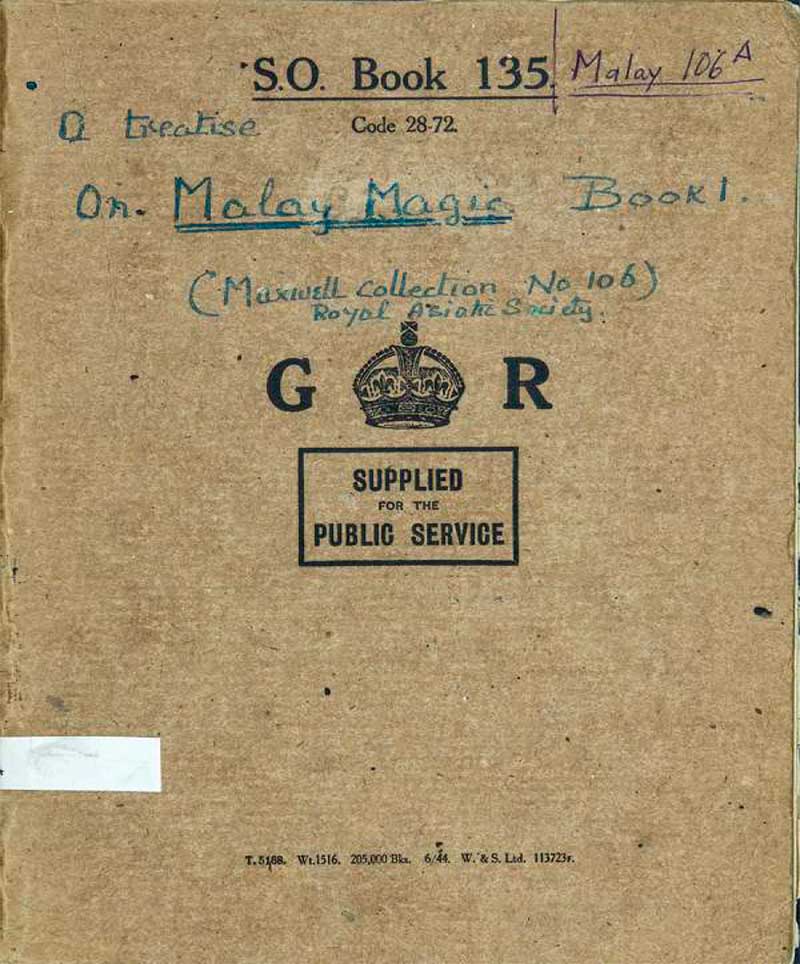 S.O. Book 135. Malay 106 A
A treatise Code 28-72.
On. Malay Magic Book 1.
(Maxwell Collection No 106)
Royal Asiatic Society.
G R
SUPPLIED
FOR THE
PUBLIC SERVICE
T. 5168. Wt.1516. 205,000 Bks. 6/44. W. & S. Ltd. 113723r.